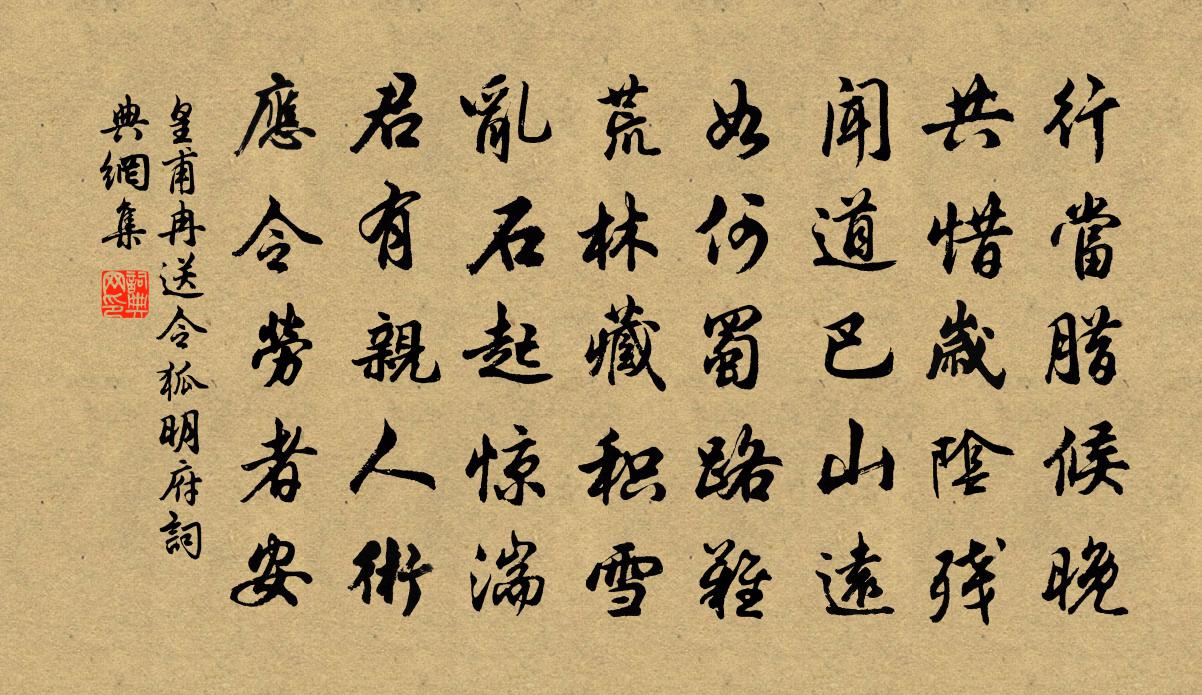 行當臘候晚
共惜歲陰殘
聞道巴山遠
如何蜀路難
荒林藏積雪
亂石起惊湍
君有親人術
應令勞者安
皇甫冉送令狐明府詞
典網集
詞典
网印